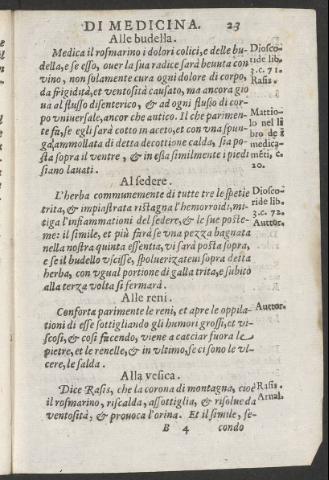 DI MEDICINA. 23
Alle budella.
Medica il rosmarino i dolori colici, e delle bu-
della, e se esso, ouer la sua radice sarà beuuta con
vino, non solamente cura ogni dolore di corpo,
da frigidità, et ventosità causato, ma ancora gio
ua al flusso disenterico, & ad ogni flusso di cor-
po vniuersale, ancor che antico. Il che parimen-
te fà, se egli sarà cotto in aceto, et con vna spun-
ga, ammollata di detta decottione calda, sia po-
sta sopra il ventre, & in essa similmente i piedi
siano lauati.
Diosco-
ride lib.
3. c. 71.
Rasis.
Mattio-
lo nel li
bro de i
medica-
mēti, c.
20.
Al sedere.
L'herba communemente di tutte tre le spetie
trita, & impiastrata ristagna l'hemorroidi, mi-
tiga l'infiammationi del sedere, & le sue poste-
me: il simile, et più farà se vna pezza bagnata
nella nostra quinta essentia, vi sarà posta sopra,
e se il budello vscisse, spoluerizateui sopra detta
herba, con vgual portione di galla trita, e subito
alla terza volta si fermarà.
Diosco-
ride lib.
3. c. 72.
Auttor.
Alle reni.
Conforta parimente le reni, et apre le oppila-
tioni di esse sottigliando gli humori grossi, et vi-
scosi, & così facendo, viene a cacciar fuora le
pietre, et le renelle, & in vltimo, se ci sono le vl-
cere, le salda.
Auttor.
Alla vesica.
Dice Rasis, che la corona di montagna, cioè
il rosmarino, riscalda, assottiglia, & risolue da
ventosità, & prouoca l'orina. Et il simile, se-
Rasis.
Arnal.
B 4 condo